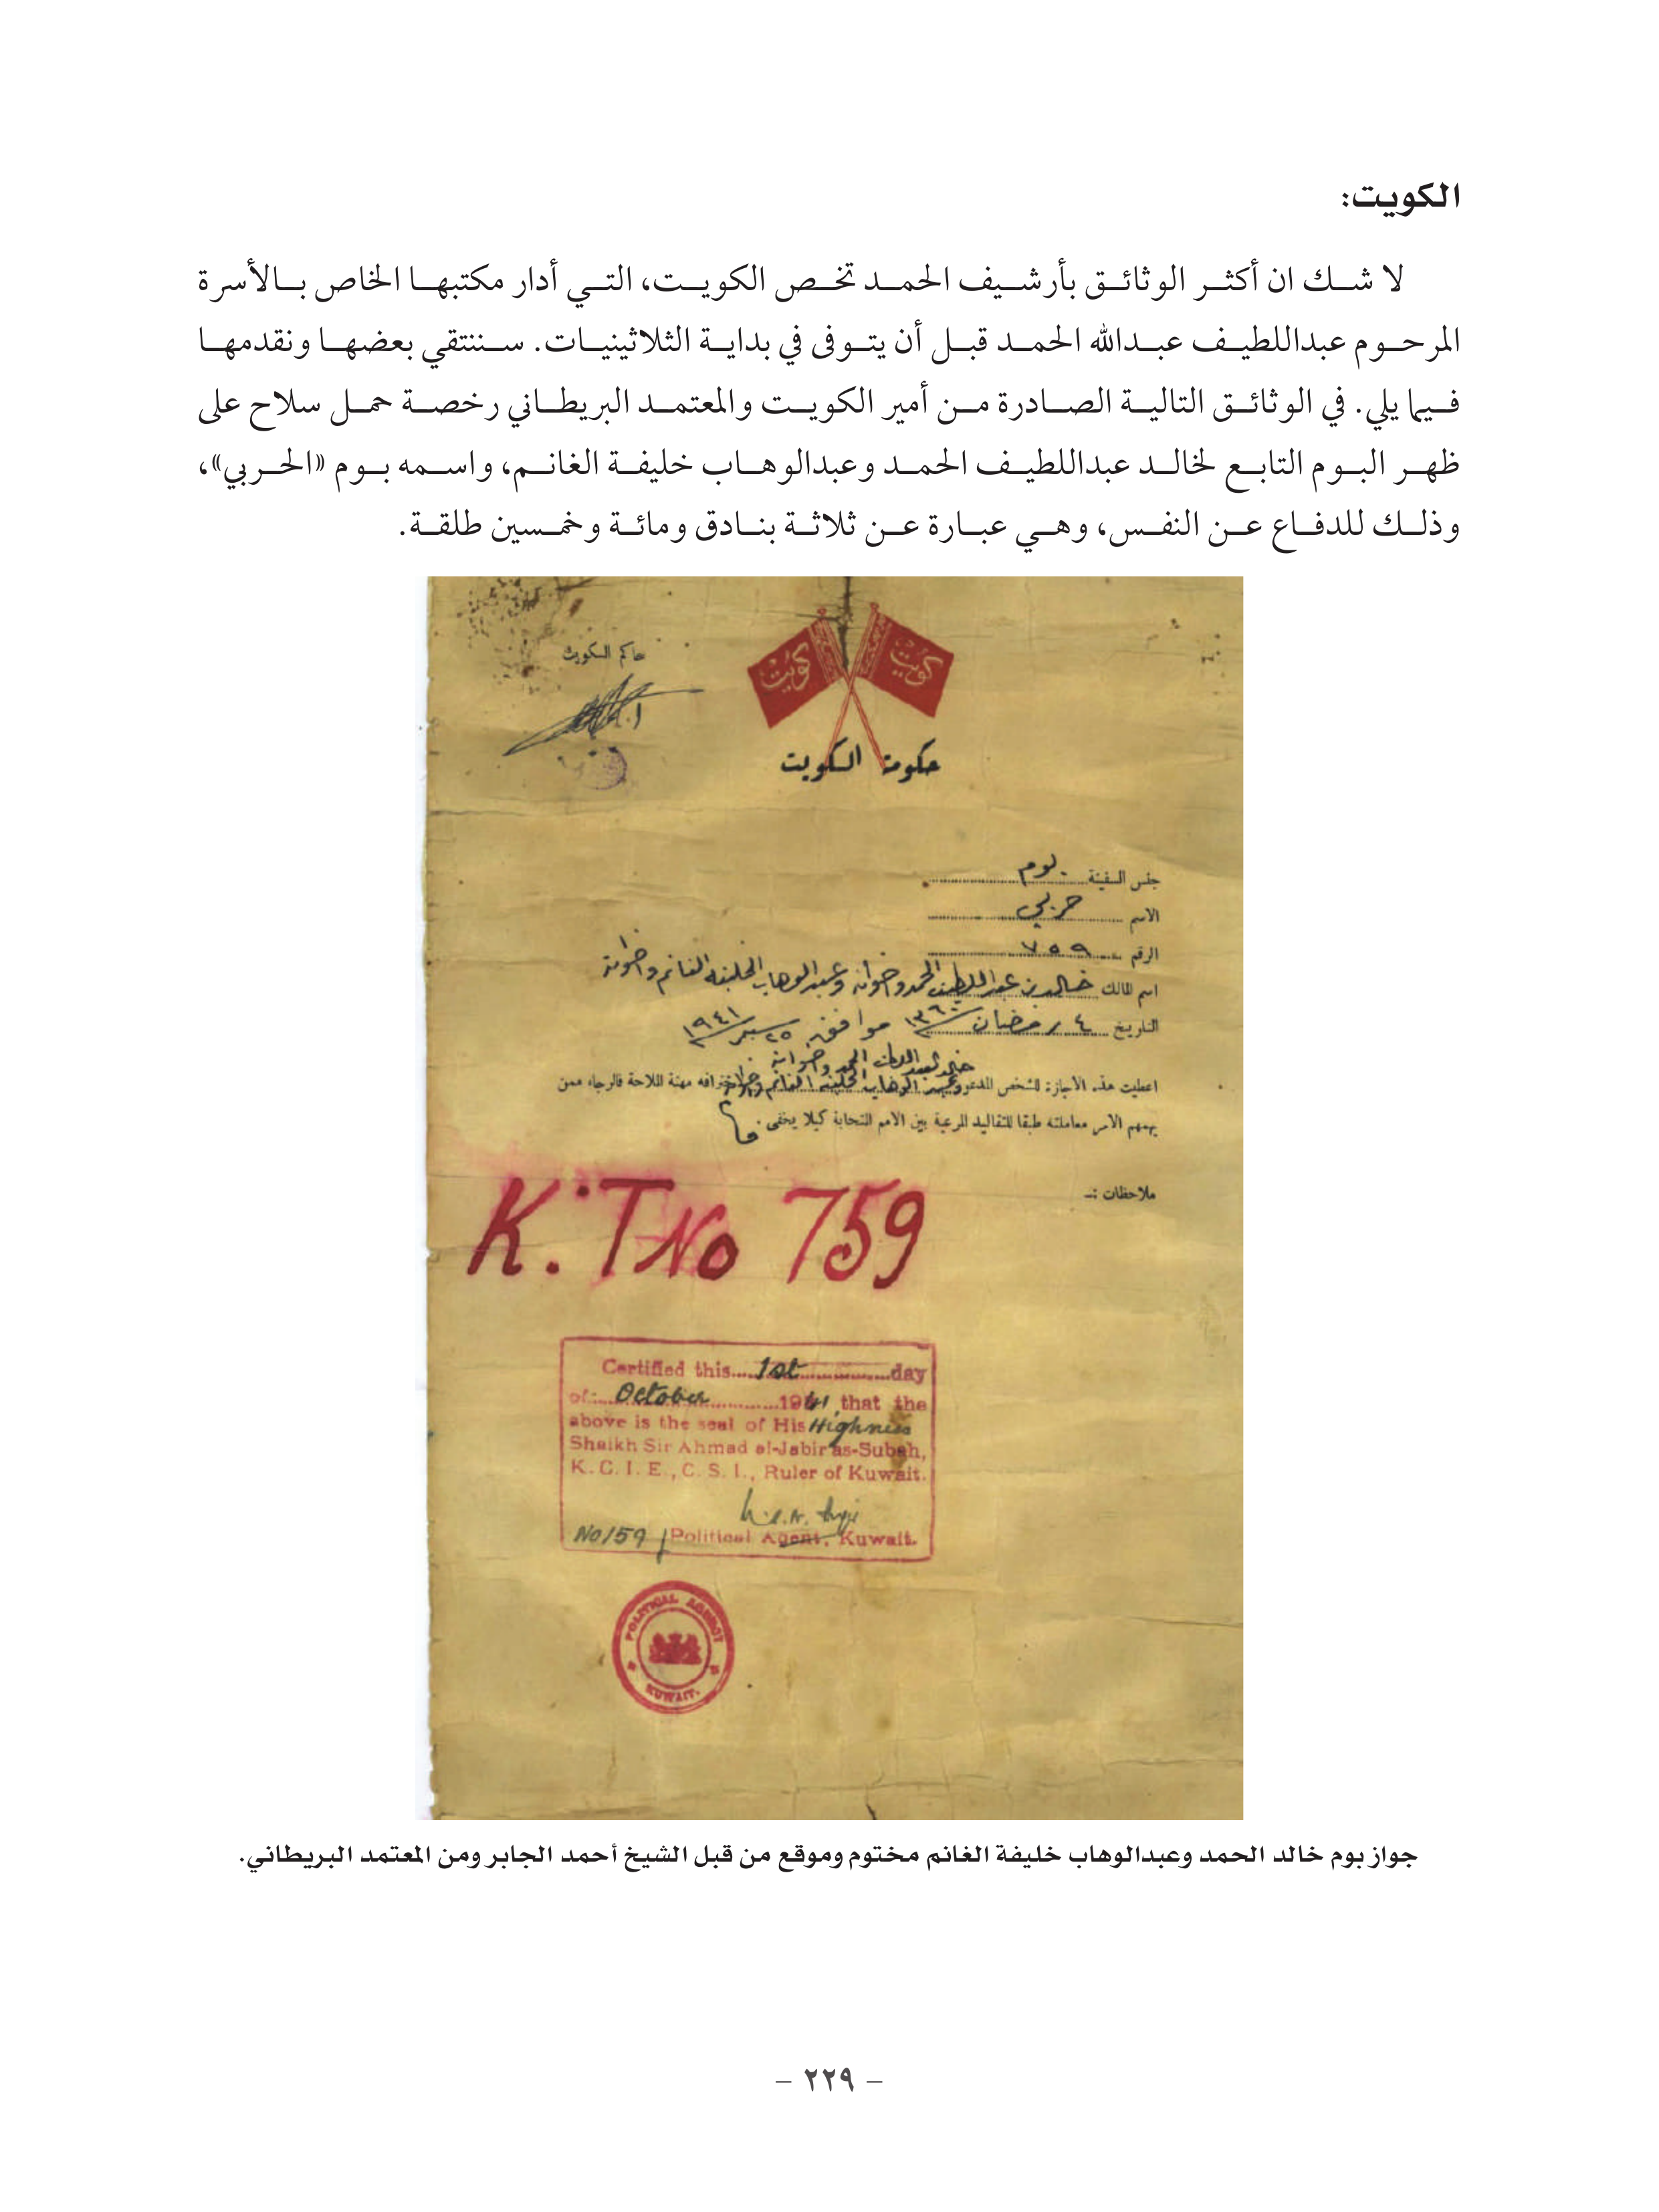 الكويت:
لا شك ان أكثر الوثائق بأرشيف الحمد تخص الكويت، التي أدار مكتبها الخاص بالأسرة
المرحوم عبداللطيف عبدالله الحمد قبل أن يتوفى في بداية الثلاثينيات. سننتقي بعضها ونقدمها
فيما يلي. في الوثائق التالية الصادرة من أمير الكويت والمعتمد البريطاني رخصة حمل سلاح على
ظهر البوم التابع لخالد عبداللطيف الحمد وعبدالوهاب خليفة الغانم، واسمه بوم «الحربي»،
وذلك للدفاع عن النفس، وهي عبارة عن ثلاثة بنادق ومائة وخمسين طلقة.
حاكم الكويت
كويت كويت
حكومة الكويت
جنس السفينة بوم
الاسم حربي
الرقم ٧٥٩
اسم المالك خالد بن عبد اللطيف الحمد واخوانه وعبد الوهاب الخليفه الغانم واخوانه
التاريخ ٤ رمضان ١٣٦٠ موافق ٢٥ سبتمبر ١٩٤١
خالد العبد اللطيف الحمد واخوانه
اعطيت هذه الاجازة للشخص المدعو وعبد الوهاب الخليفه الغانم واخوانه لاحترافه مهنة الملاحة فالرجاء ممن
يهمهم الامر معاملته طبقا للتقاليد المرعية بين الامم المتحابة كيلا يخفى.
ملاحظات :-
K.T No 759
Certified this 1st day
of October 1941, that the
above is the seal of His Highness
Shaikh Sir Ahmad al-Jabir as-Subah,
K. C. I. E., C. S. I., Ruler of Kuwait.
No 159 Political Agent, Kuwait.
POLITICAL AGENCY
KUWAIT.
جواز بوم خالد الحمد وعبدالوهاب خليفة الغانم مختوم وموقع من قبل الشيخ أحمد الجابر ومن المعتمد البريطاني.
- ٢٢٩ -